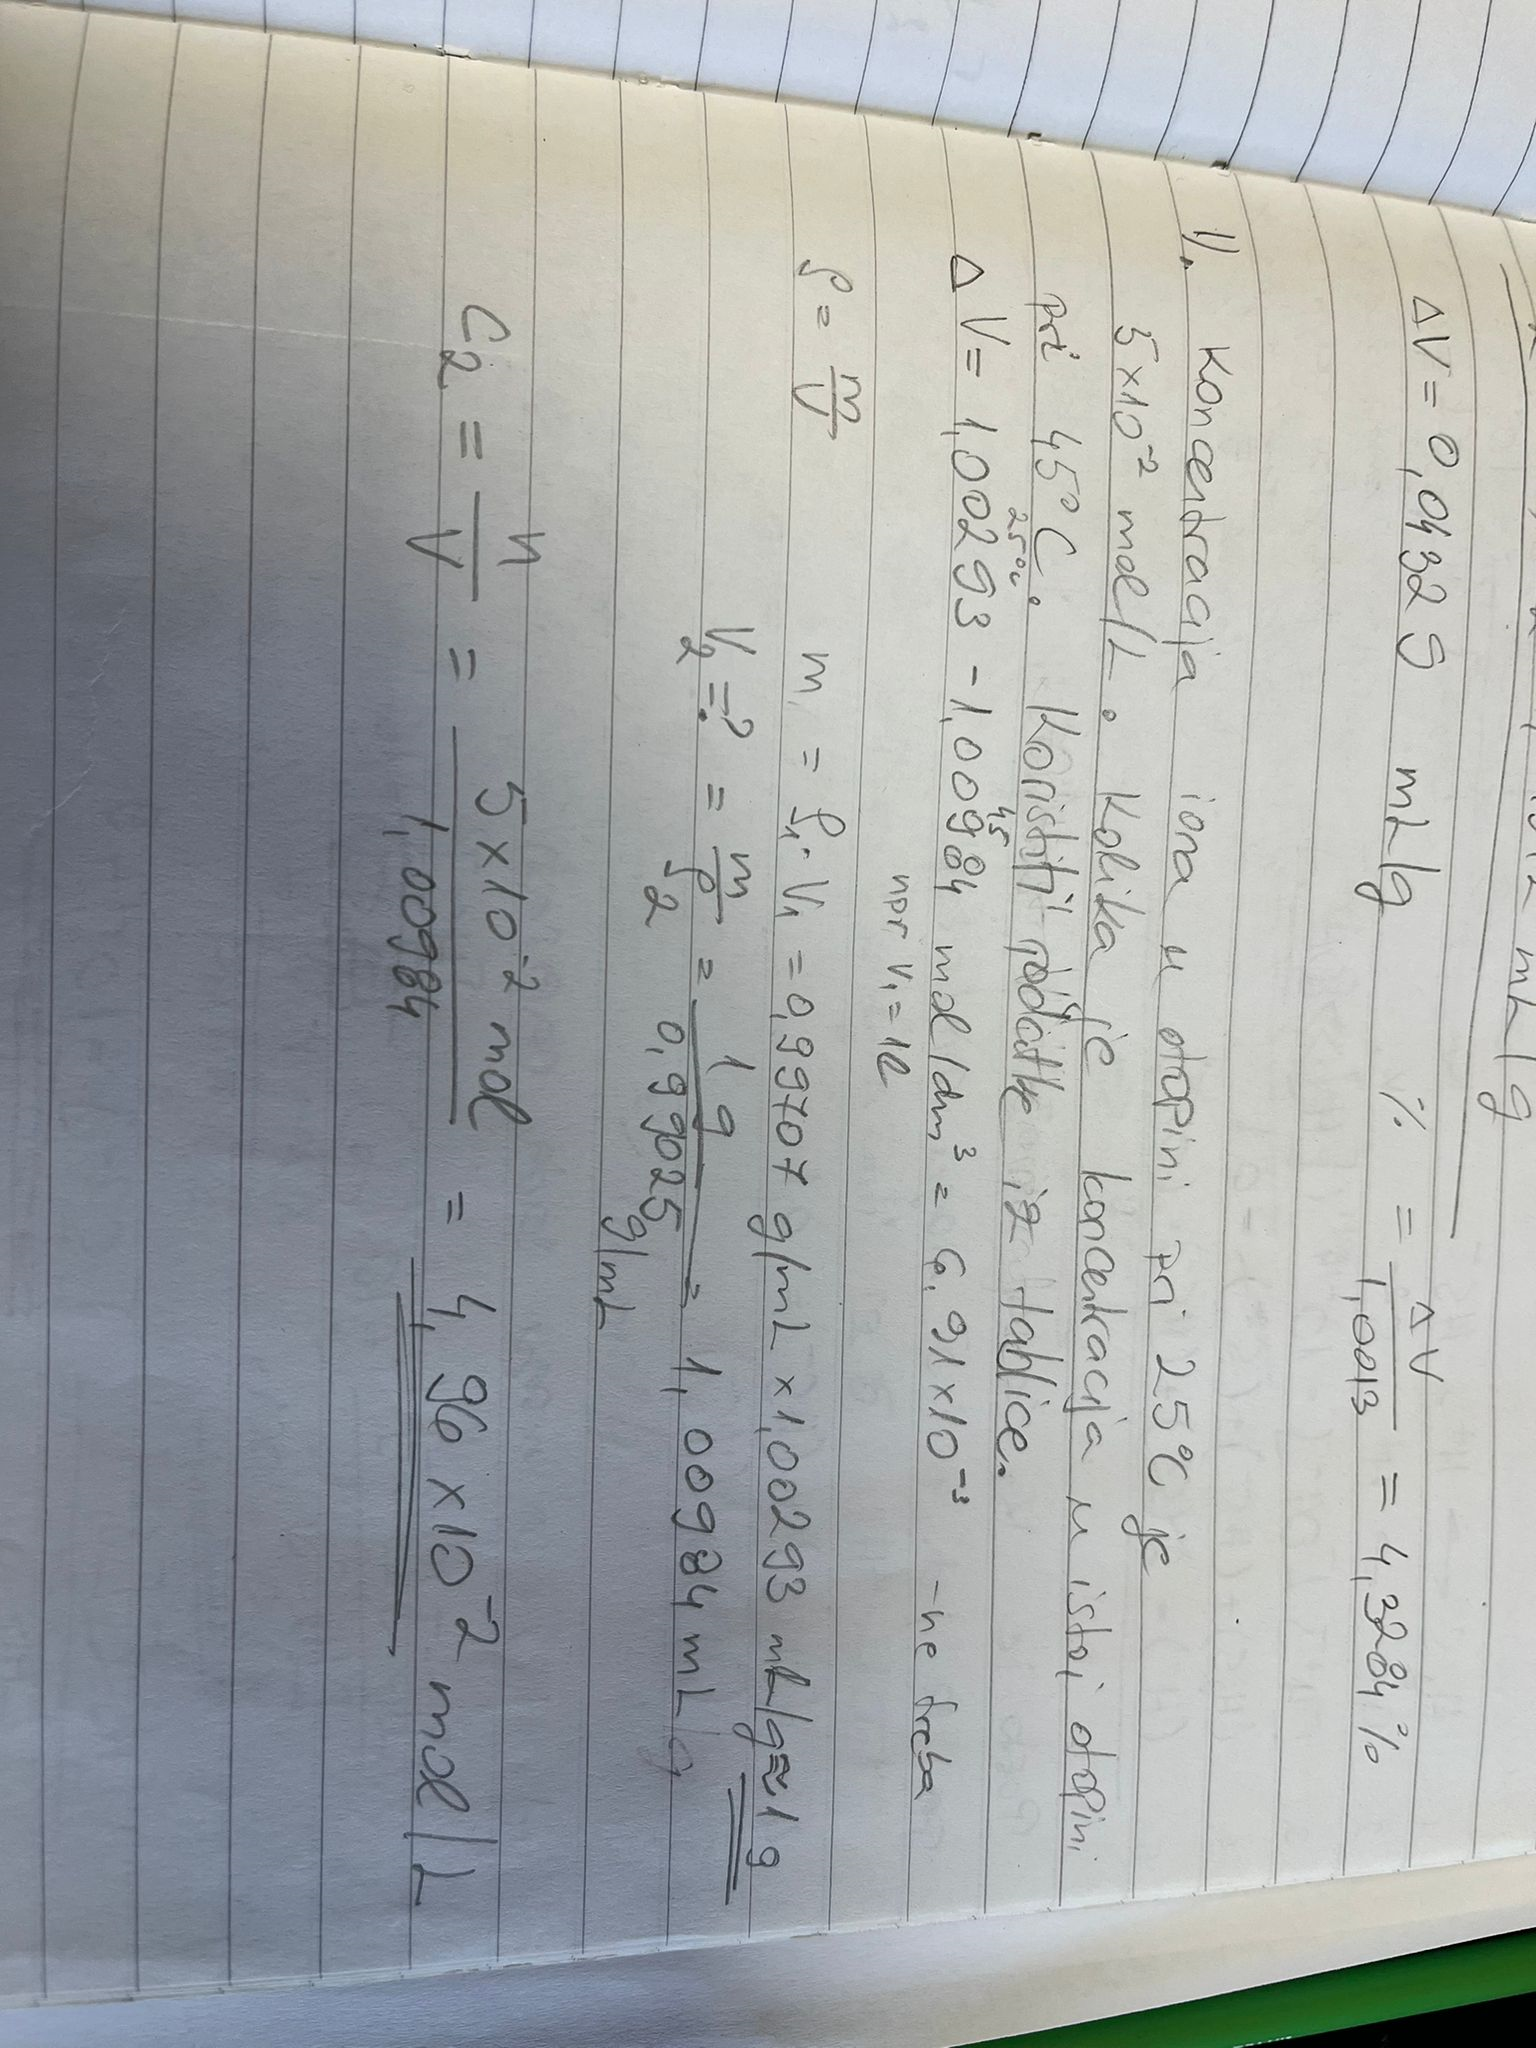 ΔV = 0,04329 mL/g % = ΔV/1,0013 = 4,3284%
1/. Koncentracija iona u otopini pri 25°C je
5×10⁻² mol/L. Kolika je koncentracija u istoj otopini
pri 45°C. Koristiti podatke iz tablice.
25°C 45
ΔV = 1,00293 - 1,00984 mol/dm³ = 6,91×10⁻³ -ne treba
npr V₁ = 1l
ρ = m/V m₁ = ρ₁·V₁ = 0,99707 g/mL × 1,00293 mL/g ≈ 1g
V₂ = ? = m/ρ₂ = 1g/0,99025 g/mL = 1,00984 mL/g
C₂ = n/V = 5×10⁻² mol/1,00984 = 4,96 × 10⁻² mol/L